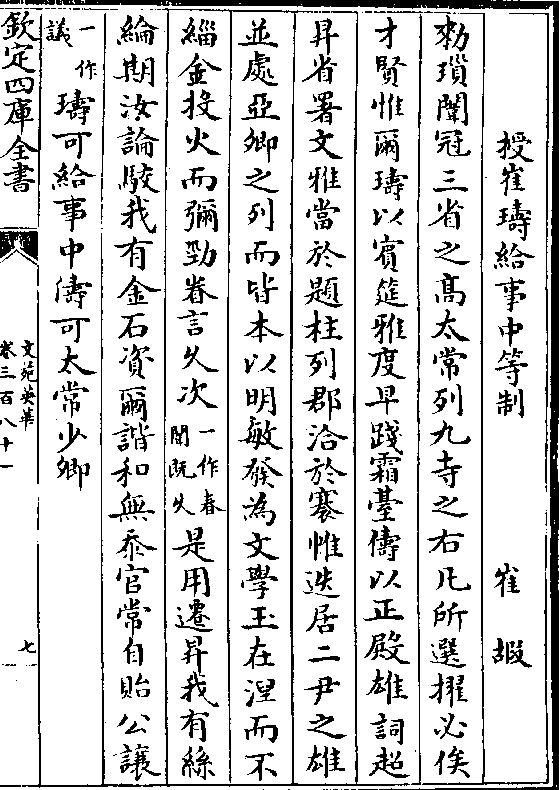 授崔璹給事中等制　崔嘏
勑瑣闈冠三省之髙太常列九寺之右凡所選擢必俟
才賢惟爾璹以賓筵雅度早踐霜臺儔以正殿雄詞超
昇省署文雅當於題柱列郡洽於褰帷迭居二尹之雄
並處亞卿之列而皆本以明敏發為文學玉在涅而不
緇金投火而彌勁眷言久次一作春聞既久是用遷昇我有絲
綸期汝論駮我有金石資爾諧和無忝官常自貽公讓
一作議璹可給事中儔可太常少卿
欽定四庫全書
文苑英華
卷三百八十一
七